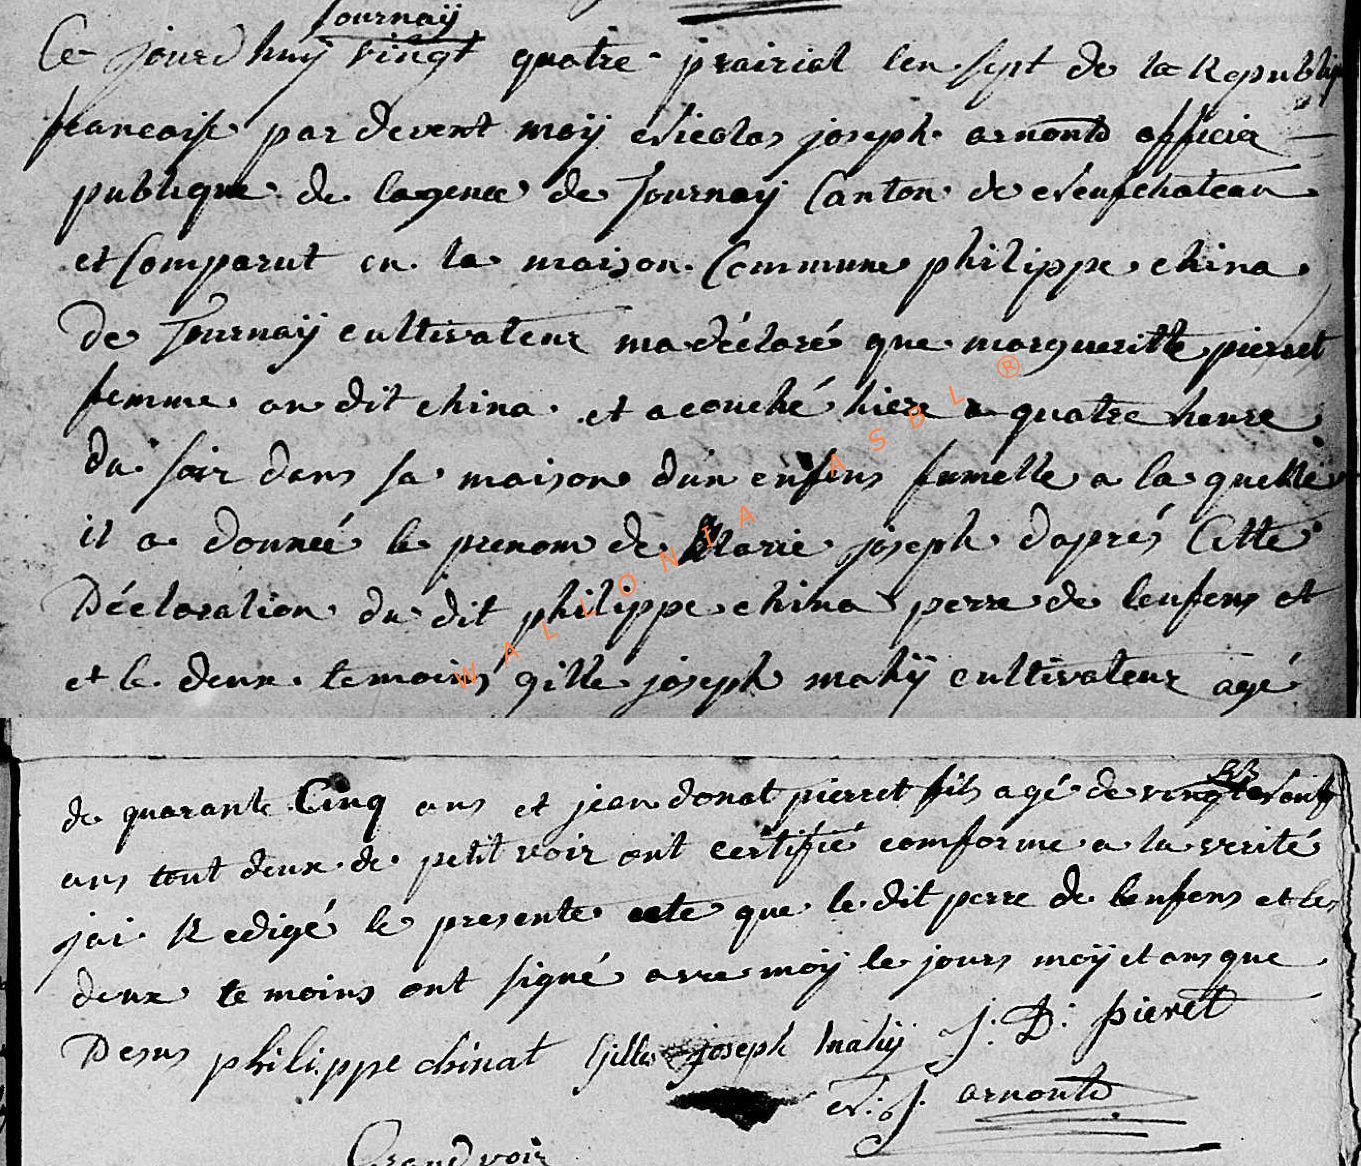 Tournaÿ
Ce jourdhuÿ vingt quatre prairial len sept de la Republiq
francaise par devent moÿ Nicolas joseph arnould officier
publique de lagence de Tournaÿ Canton de Neufchateau
et Comparut en la maison Commune philippe china
de Tournaÿ cultivateur ma déclaré que margueritte pierret
femme au dit china et acouché hiere a quatre heure
du soir dans sa maison dun enfens fumelle a la quelle
il a donneé le prenom de Marie joseph daprés Cette
Déclaration du dit philippe china perre de lenfens et
et le deux temoins gille joseph mahÿ cultivateur agé
de quarante Cinq ans et jean donat pierret fils agé de vingt
ans tout deux de petit voir ont certifié comforme a la verité
jai Redigé le presente acte que le dit perre de lenfens et les
deux temoins ont signé avre moÿ le jours moÿ et ans que
Desus philippe chinat Gille joseph mahÿ J: D: pieret
N: J. arnould
Grandvoir
WALLONIA ASBL ®